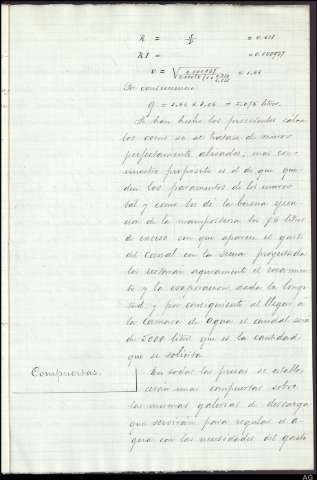 R = = 0.618
RI = = 0.000927
v = = 1.44
De consecuencia
Se han hecho los precedentes cálcu
los como si se tratara de muros
perfectamente alisados, mas co
nuestro propósito es el de que que
den los paramentos de los muros
tal y como los de la buena ejecu
ción de la mampostería los 76 litros
de exceso con que aparece el gasto
del canal con la sección proyectada
los restarán seguramente el rozamien
to y la evaporación, dada la longi
tud, y por consiguiente al llegar a
la cámara de agua el caudal será
de 2000 litros que es la cantidad
que se solicita.
Compuertas. En todas las presas se estable
cerán unas compuertas sobre
las mismas galerías de descarga
que servirán para regular el a-
gua con las necesidades del gasto
AG